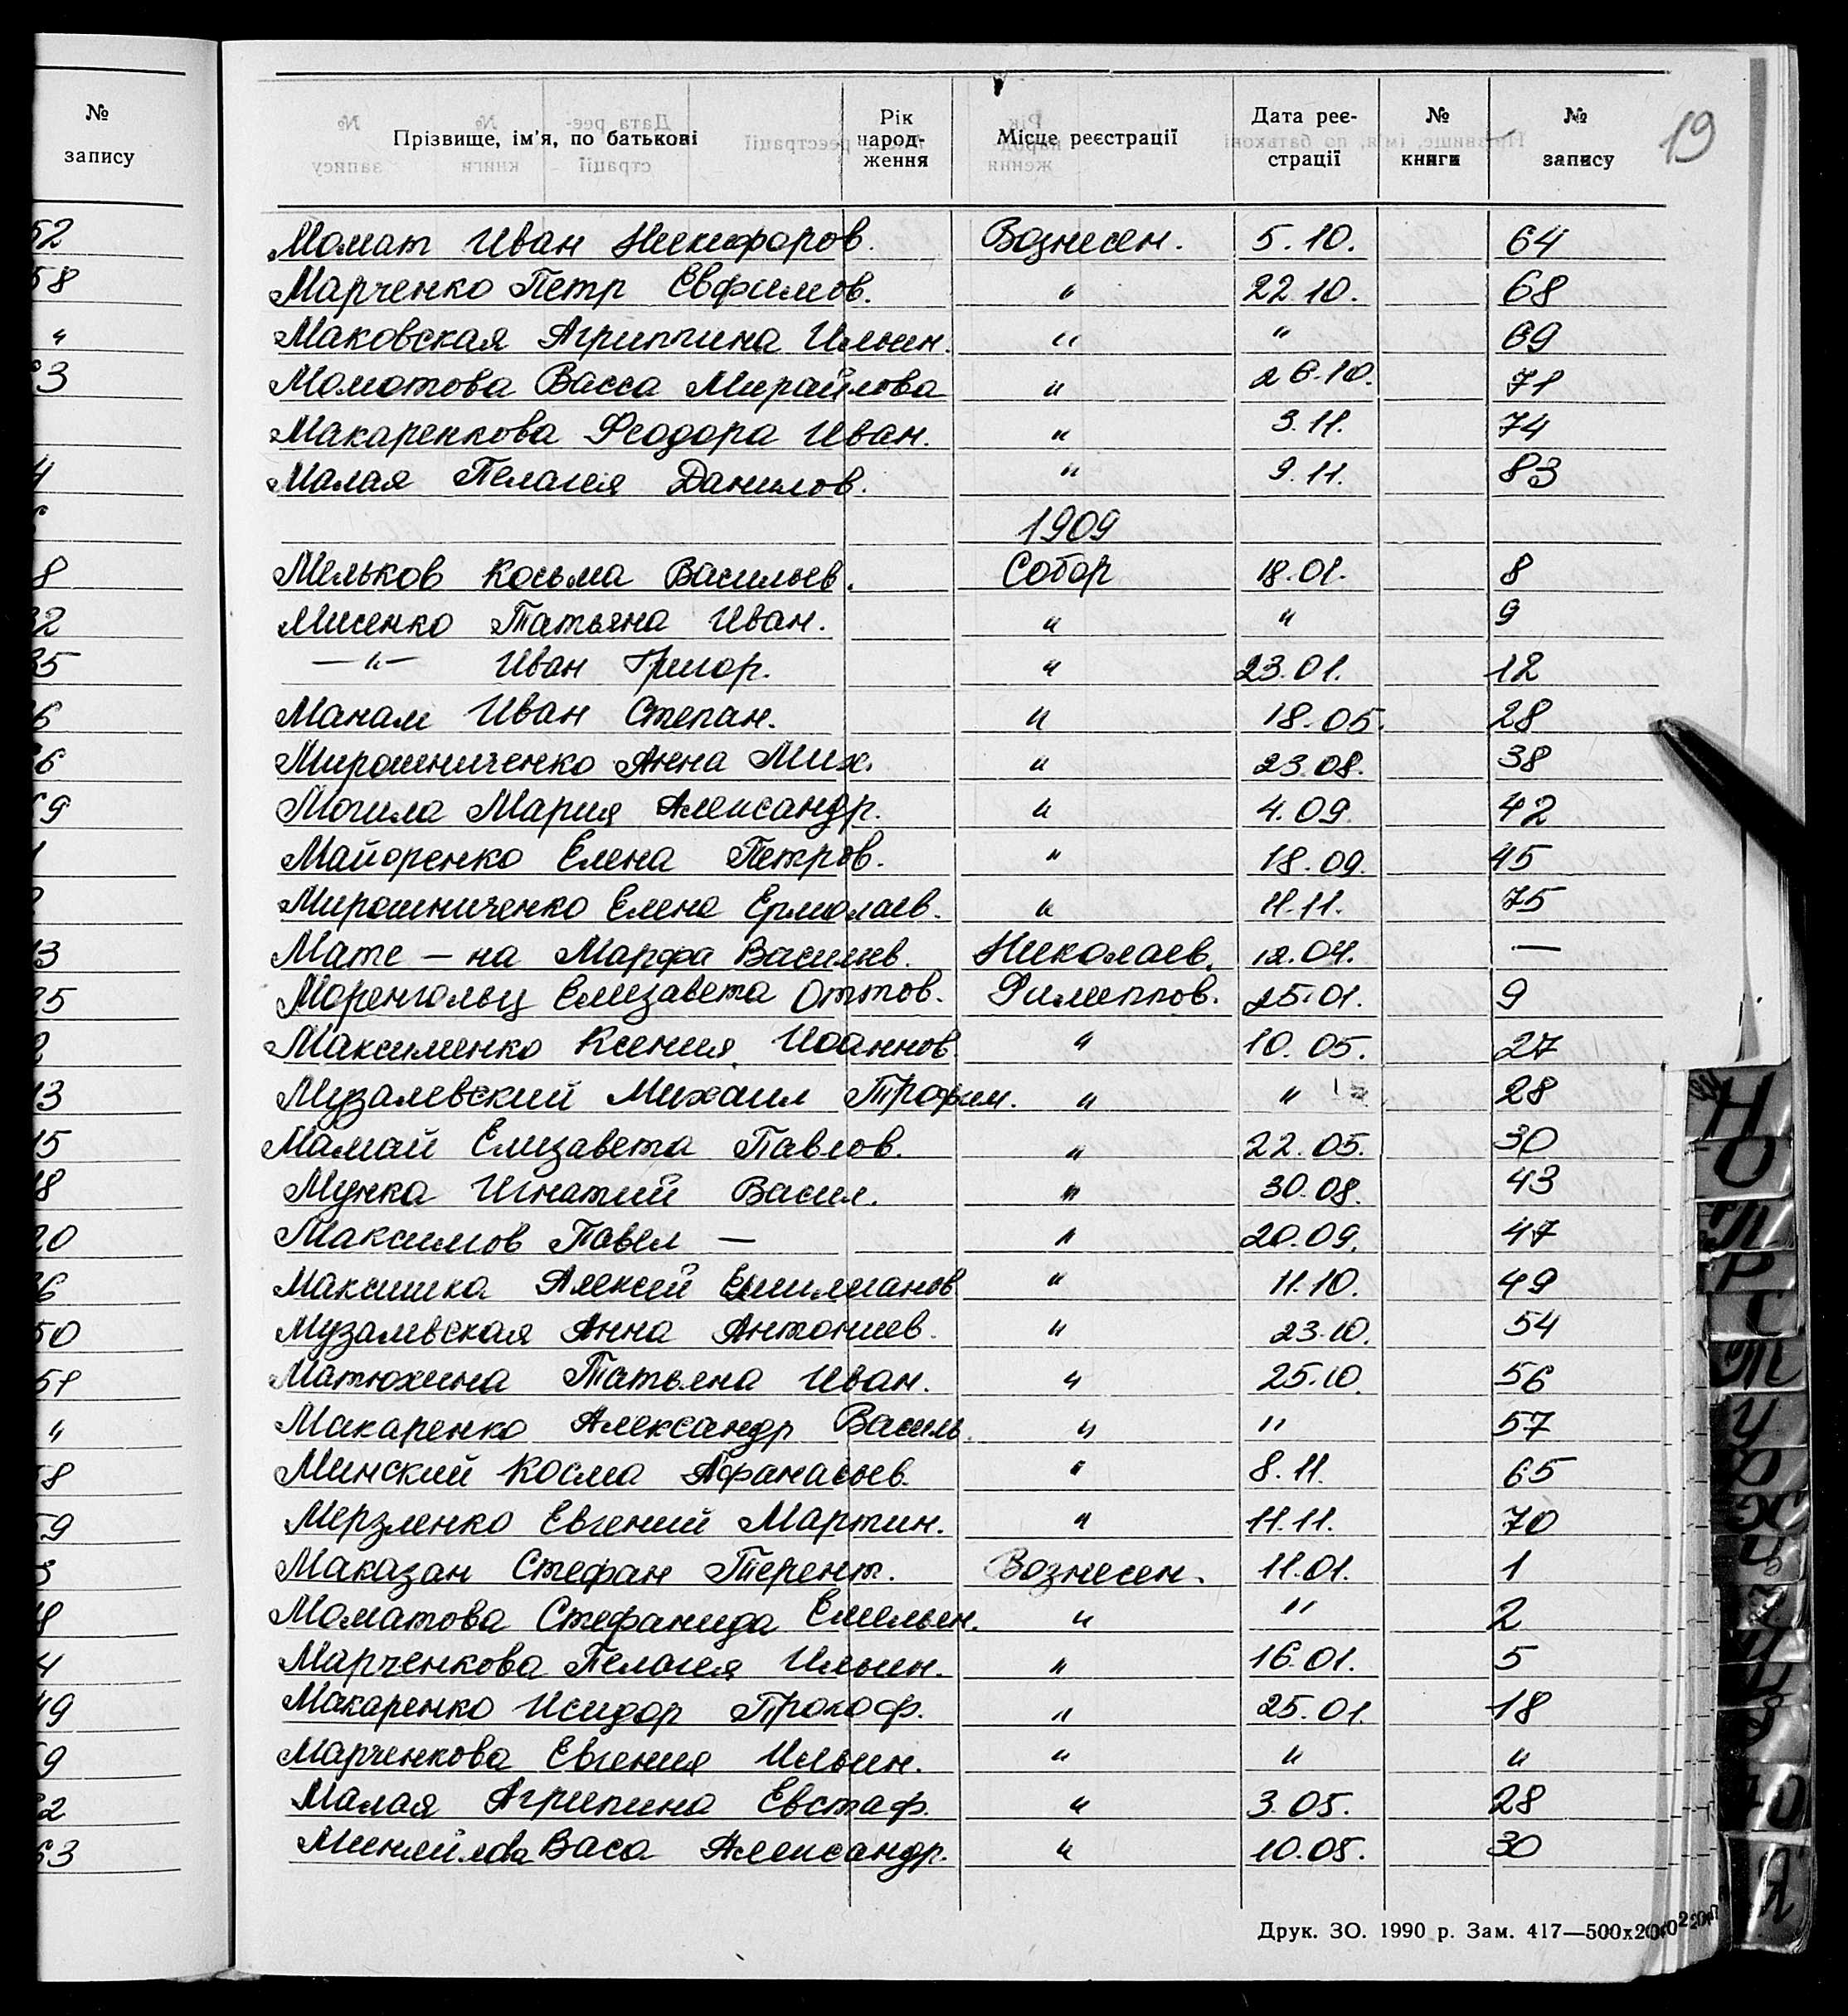 № запису
52
58
"
3
4
8
19
Прізвище, ім'я, по батькові Рік народження Місце реєстрації Дата реєстрації № книги № запису
Момат Иван Никифоров. Вознесен. 5.10. 64
Марченко Петр Евфимов. " 22.10. 68
Маковская Агриппина Ильин. " " 69
Моматова Васса Мирайлова " 26.10. 71
Макаренкова Феодора Иван. " 3.11. 74
Малая Пелагея Данилов. " 9.11. 83
1909
Мельков Косьма Васильев. Собор 18.01. 8
Мисенко Татьяна Иван. " " 9
— " — Иван Григор. " 23.01. 12
Манам Иван Степан. " 18.05. 28
Мирошниченко Анна Мих. " 23.08. 38
Могила Мария Александр. " 4.09. 42
Майоренко Елена Петров. " 18.09. 45
Мирошниченко Елена Ермолаев. " 11.11. 75
Матс — на Марфа Васильев. Николаев. 12.04. —
Моренгольц Елизавета Оттов. Филиппов. 25.01. 9
Максименко Ксения Иоаннов. " 10.05. 27
Музалевский Михаил Трофим. " " 28
Мамай Елизавета Павлов. " 22.05. 30
Мунка Игнатий Васил. " 30.08. 43
Максимов Павел — " 20.09. 47
Максишка Алексей Емилианов " 11.10. 49
Музалевская Анна Антониев. " 23.10. 54
Матюхина Татьяна Иван. " 25.10. 56
Макаренко Александр Василь. " " 57
Минский Косма Афанасьев. " 8.11. 65
Мерзленко Евгений Мартин. " 11.11. 70
Маказан Стефан Терент. Вознесен. 11.01. 1
Моматова Стефанида Емельян. " " 2
Марченкова Пелагея Ильин. " 16.01. 5
Макаренко Исидор Прокоф. " 25.01. 18
Марченкова Евгения Ильин. " " "
Малая Агрипина Евстаф. " 3.05. 28
Васа Александр. " 10.05. 30
Друк. ЗО. 1990 р. Зам. 417—500х200